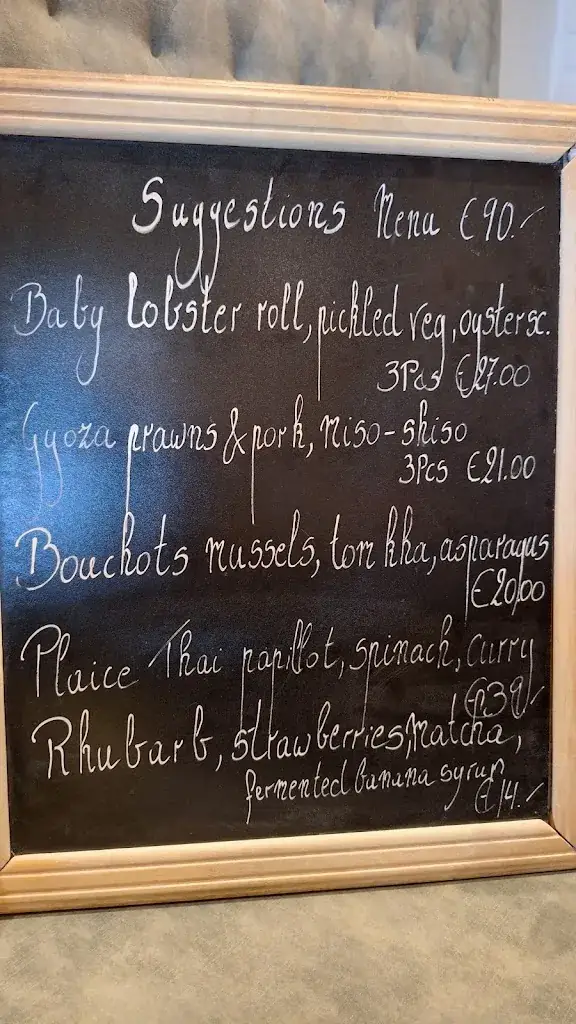 Suggestions Menu €90.-
Baby lobster roll, pickled veg, oyster sc.
3Pcs €27.00
Gyoza prawns & pork, Miso-shiso
3Pcs €21.00
Bouchots Mussels, tom kha, asparagus
€20,00
Plaice Thai papillot, spinach, curry
€39.-
Rhubarb, strawberries, Matcha,
fermented banana syrup
€14.-